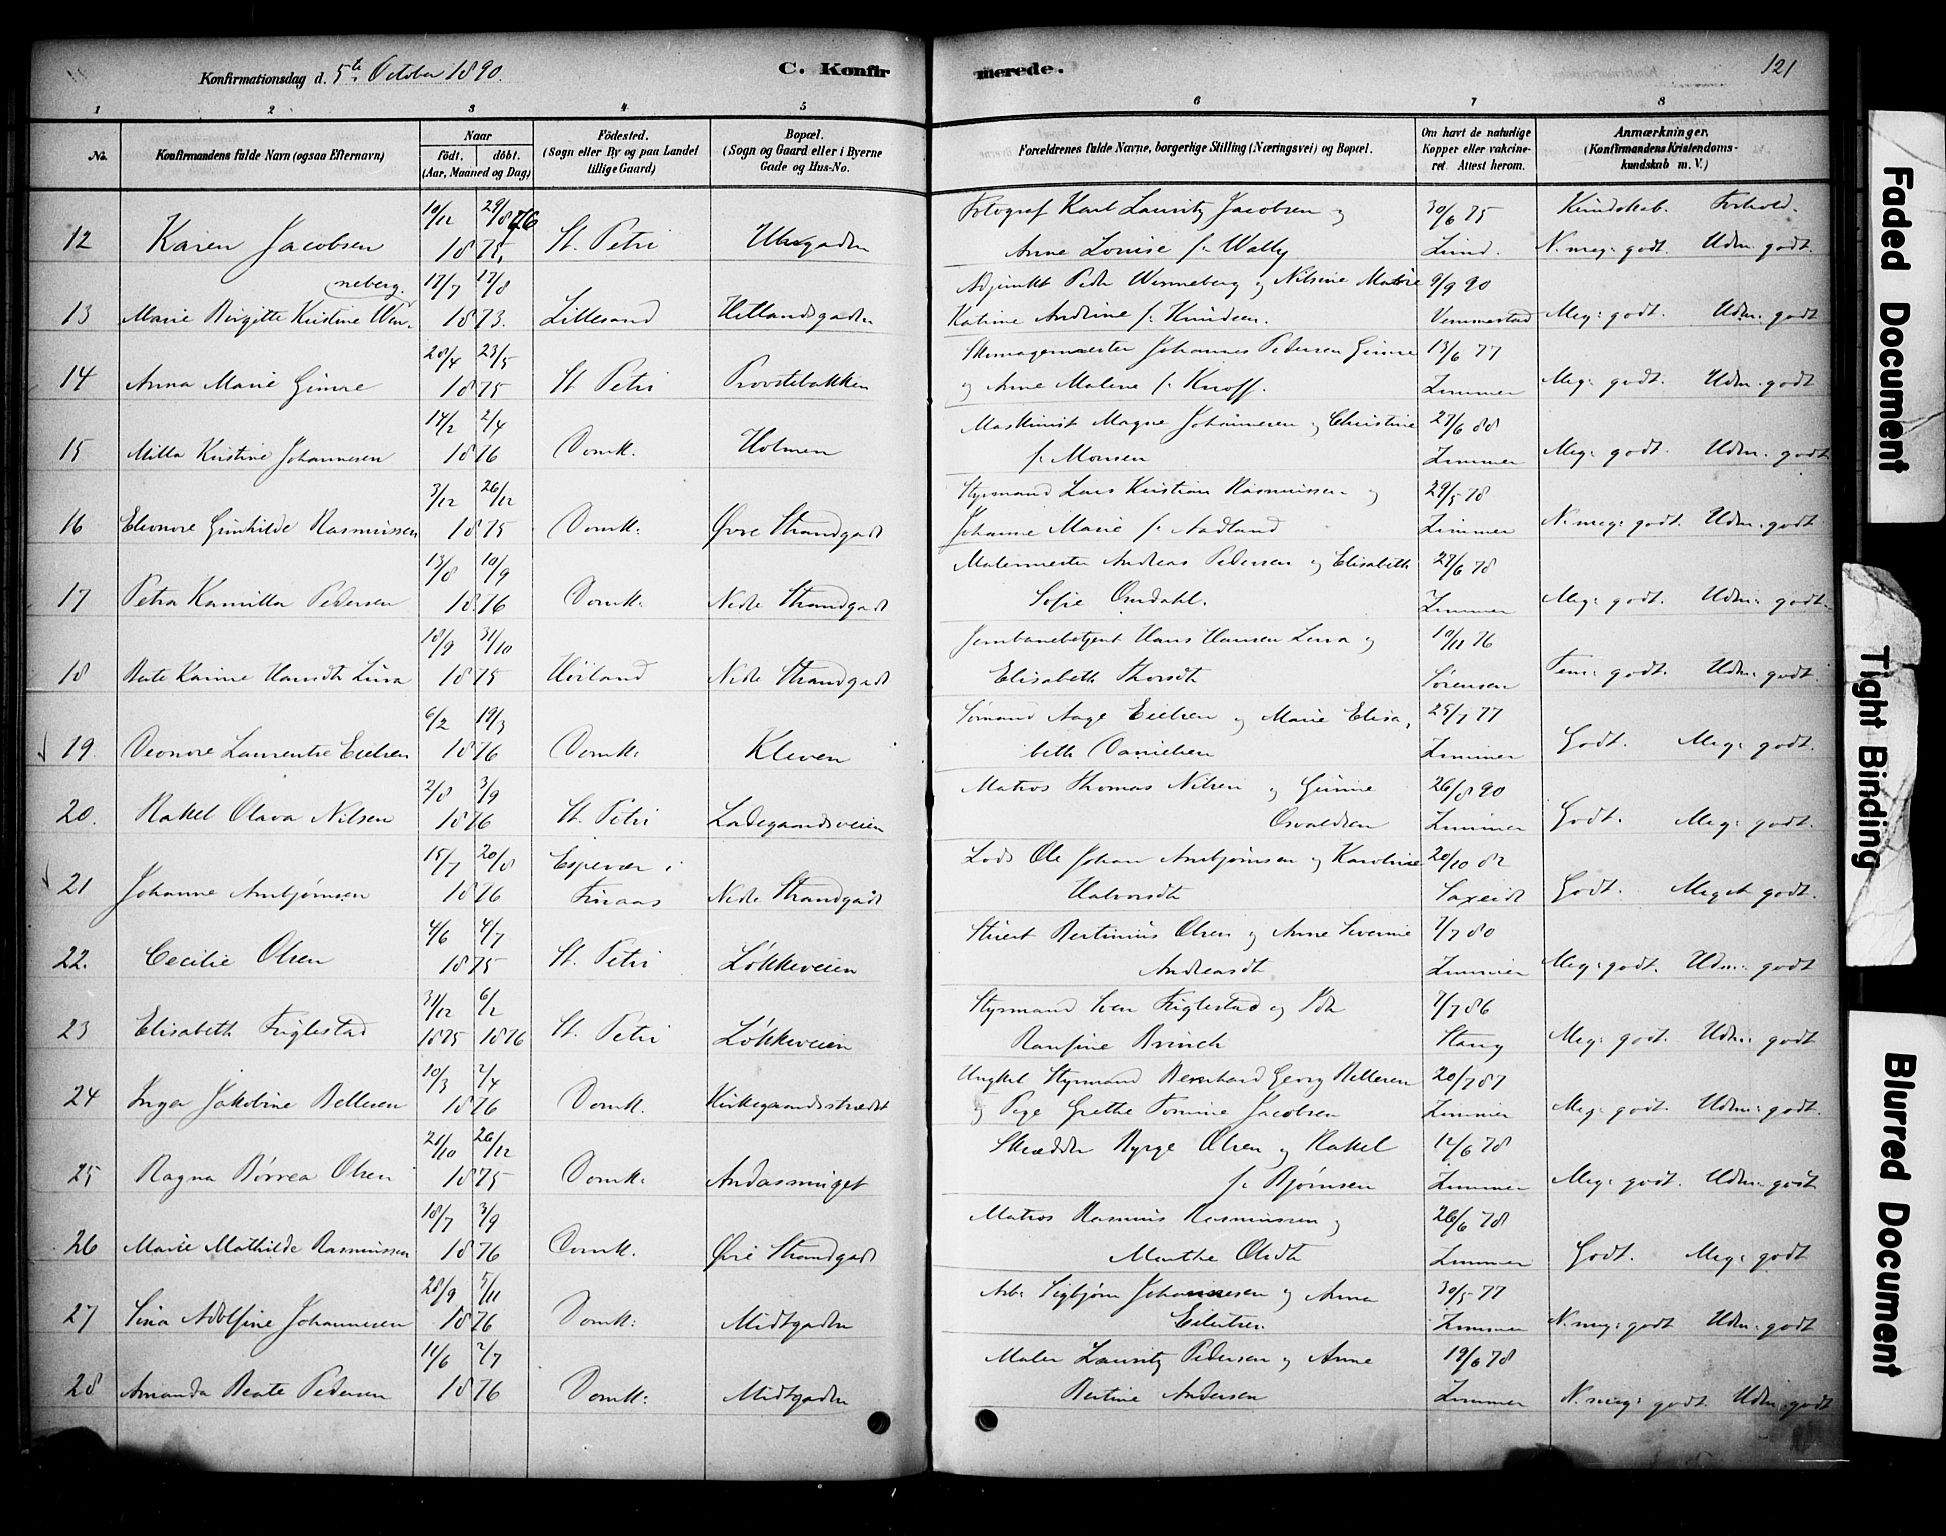 Konfirmationsdag d. 5te October 1890.
C. Konfirmerede.
121
1 2 3 4 5 6 7 8
No.
Konfirmandens fulde Navn (ogsaa Efternavn)
Naar
födt. döbt.
(Aar, Maaned og Dag)
Födested.
(Sogn eller By og paa Landet tillige Gaard)
Bopæl.
(Sogn og Gaard eller i Byerne Gade og Hus-No.
Forældrenes fulde Navne, borgerlige Stilling (Næringsvei) og Bopæl.
Om havt de naturlige Kopper eller vakcineret. Attest herom.
Anmærkninger.
(Konfirmandens Kristendomskundskab m. V.)
10/12 29/8 76 Fotograf Karl Lauritz Jacobsen og 30/6 75 Kundskab. Forhold.
12 Karen Jacobsen 1875, St. Petri Anne Louise f. Wally Lund. N. meg: godt. Udm: godt.
neberg. 17/7 17/8 Adjunkt Peder Wenneberg og Nilsine Marie 9/9 90
13 Marie Birgitte Kristine Wen- 1873. Lillesand Hetlandsgaden Katrine Andrine f. Knudsen. Vemmestad Meg: godt. Udm: godt
28/4 23/5 Skomagermester Johannes Pedersen Gimre 13/6 77
14 Anna Marie Gimre 1875 St. Petri Provstebakken og Anne Malene f. Knoff. Zimmer Meg: godt. Udm: godt
14/2 2/4 Maskinist Magne Johannesen og Christine 27/6 88
15 Milla Kristine Johannesen 1876 Domk. Holmen f. Monsen Zimmer Meg: godt. Udm: godt
3/12 26/12 Styrmand Lars Kristian Rasmussen og 29/5 78
16 Eleonore Gunhilde Rasmussen 1875 Domk: Øvre Strandgade Johanne Marie f. Aadland Zimmer N. meg: godt. Udm: godt
13/8 10/9 Malermester Andreas Pedersen og Elisabeth 27/6 78
17 Petra Kamilla Pedersen 1876 Domk: Nedre Strandgade Sofie Omdahl. Zimmer Meg: godt. Udm: godt.
18/9 31/10 Jernbanebetjent Hans Hansen Lura og 10/11 76
18 Berte Karine Hansdt Lura 1875 Høiland Nedre Strandgade Elisabeth Thorsdt Sørensen Tem: godt. Udm: godt.
6/2 19/3 Sømand Aage Eielsen og Marie Elisa- 25/7 77
19. Leonore Laurentse Eielsen 1876 Domk: Kleven beth Danielsen Zimmer Godt. Meg: godt.
2/8 3/9 Matros Thomas Nilsen og Gunne 26/8 90
20. Rakel Olava Nilsen 1876 St. Petri Ladegaardsveien Osvaldsen Zimmer Godt. Meg: godt.
15/7 20/8 Espevær i Lods Ole Johan Arnbjørnsen og Karoline 20/10 82
21 Johanne Arnbjørnsen 1876 Finaas Nedre Strandgade Halvorsdt Saxeide Godt. Meget godt.
4/6 4/7 Stuert Bertinius Olsen og Anne Severine 1/7 80
22. Cecilie Olsen 1875 St. Petri Løkkeveien Andreasdt Zimmer Meg: godt. Udm: godt
31/12 6/2 Styrmand Sven Fuglestad og Ida 7/7 86
23 Elisabeth Fuglestad 1875 1876 St. Petri Løkkeveien Ranfine Brinch Stang Meg: godt. Udm: godt
10/3 2/4 Ungkel Styrmand Bernhard Georg Bellesen 20/7 87
24 Inga Jakobine Bellesen 1876 Domk. Kirkegaardsstrædet og Pige Grethe Tomine Jacobsen Zimmer Meg: godt. Udm: godt.
21/10 26/12 Skrædder Byrge Olsen og Rakel 12/6 78
25 Ragna Børrea Olsen 1875 Domk: Andasmuget f. Bjørnsen Zimmer Meg: godt. Udm: godt
18/7 3/9 Matros Rasmus Rasmussen og 26/6 78
26 Marie Mathilde Rasmussen 1876 Domk. Øvre Strandgade Marthe Olsdt Zimmer Godt. Meg: godt
28/9 5/11 Arb: Sigbjørn Johannesen og Anna 30/5 77
27 Sina Adolfine Johannesen 1876 Domk: Midtgaden Eilertsen Zimmer N. meg: godt Udm: godt
11/6 2/7 Maler Lauritz Pedersen og Anne 19/6 78
28 Amanda Beate Pedersen 1876 Domk: Midtgaden Bertine Andersen Zimmer N. meg: godt Udm: godt
Faded Document
Tight Binding
Blurred Document